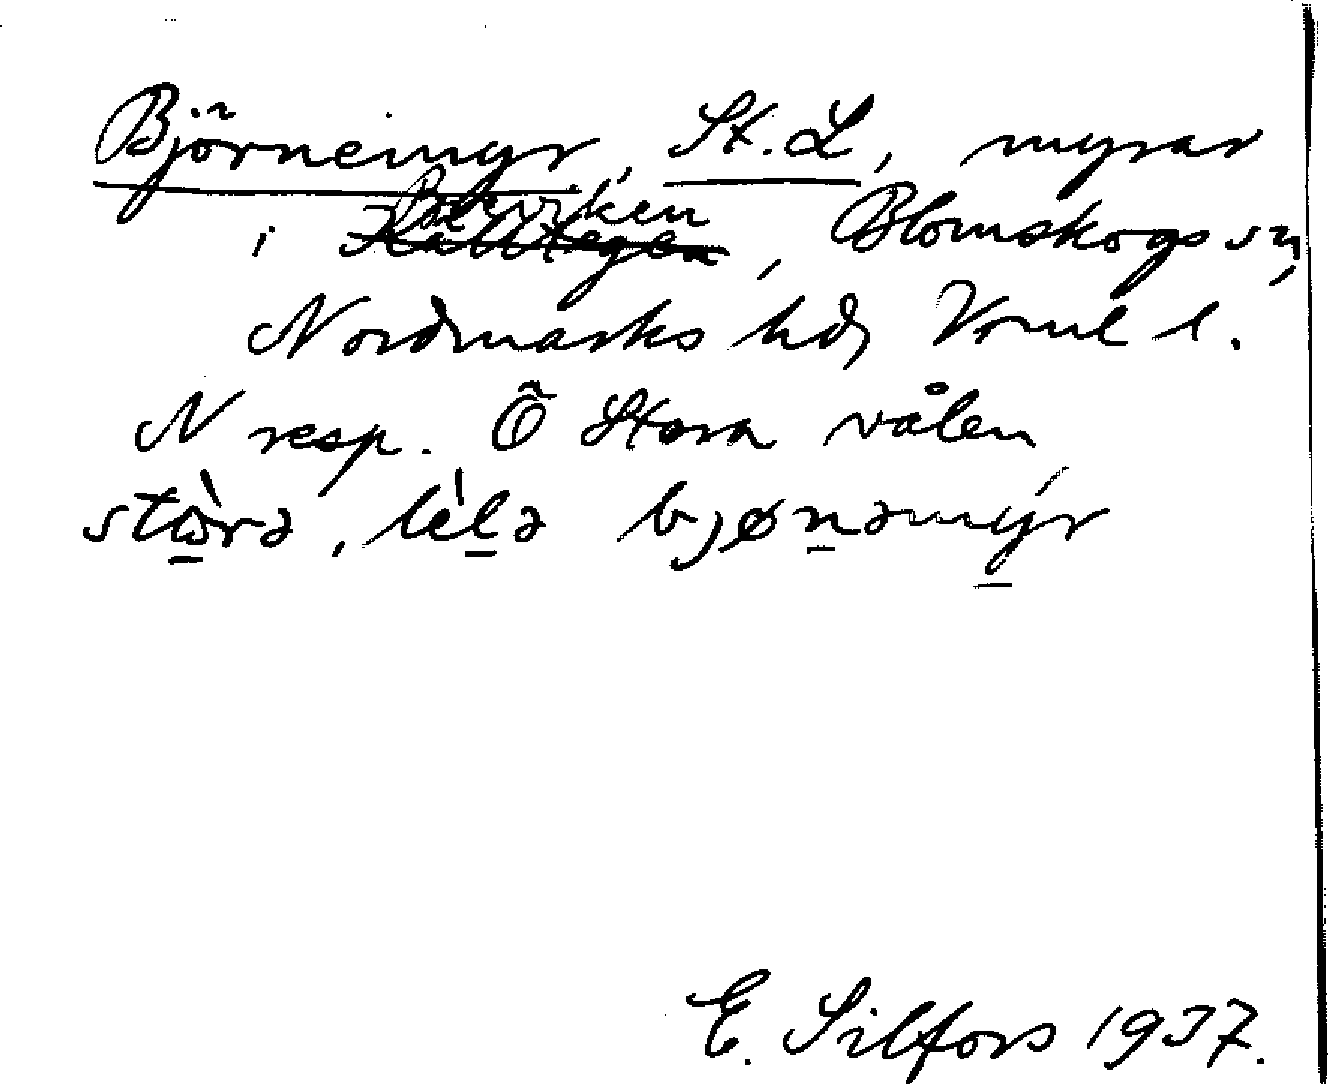 Björnemyr, St. L, myrar
i Bårviken, Blomskogs sn,
Nordmarks hd, Vrml l.
N resp. Ö Stora vålen
stɷ̀rə, lèlə bjønəmýr
E. Silfors 1937.